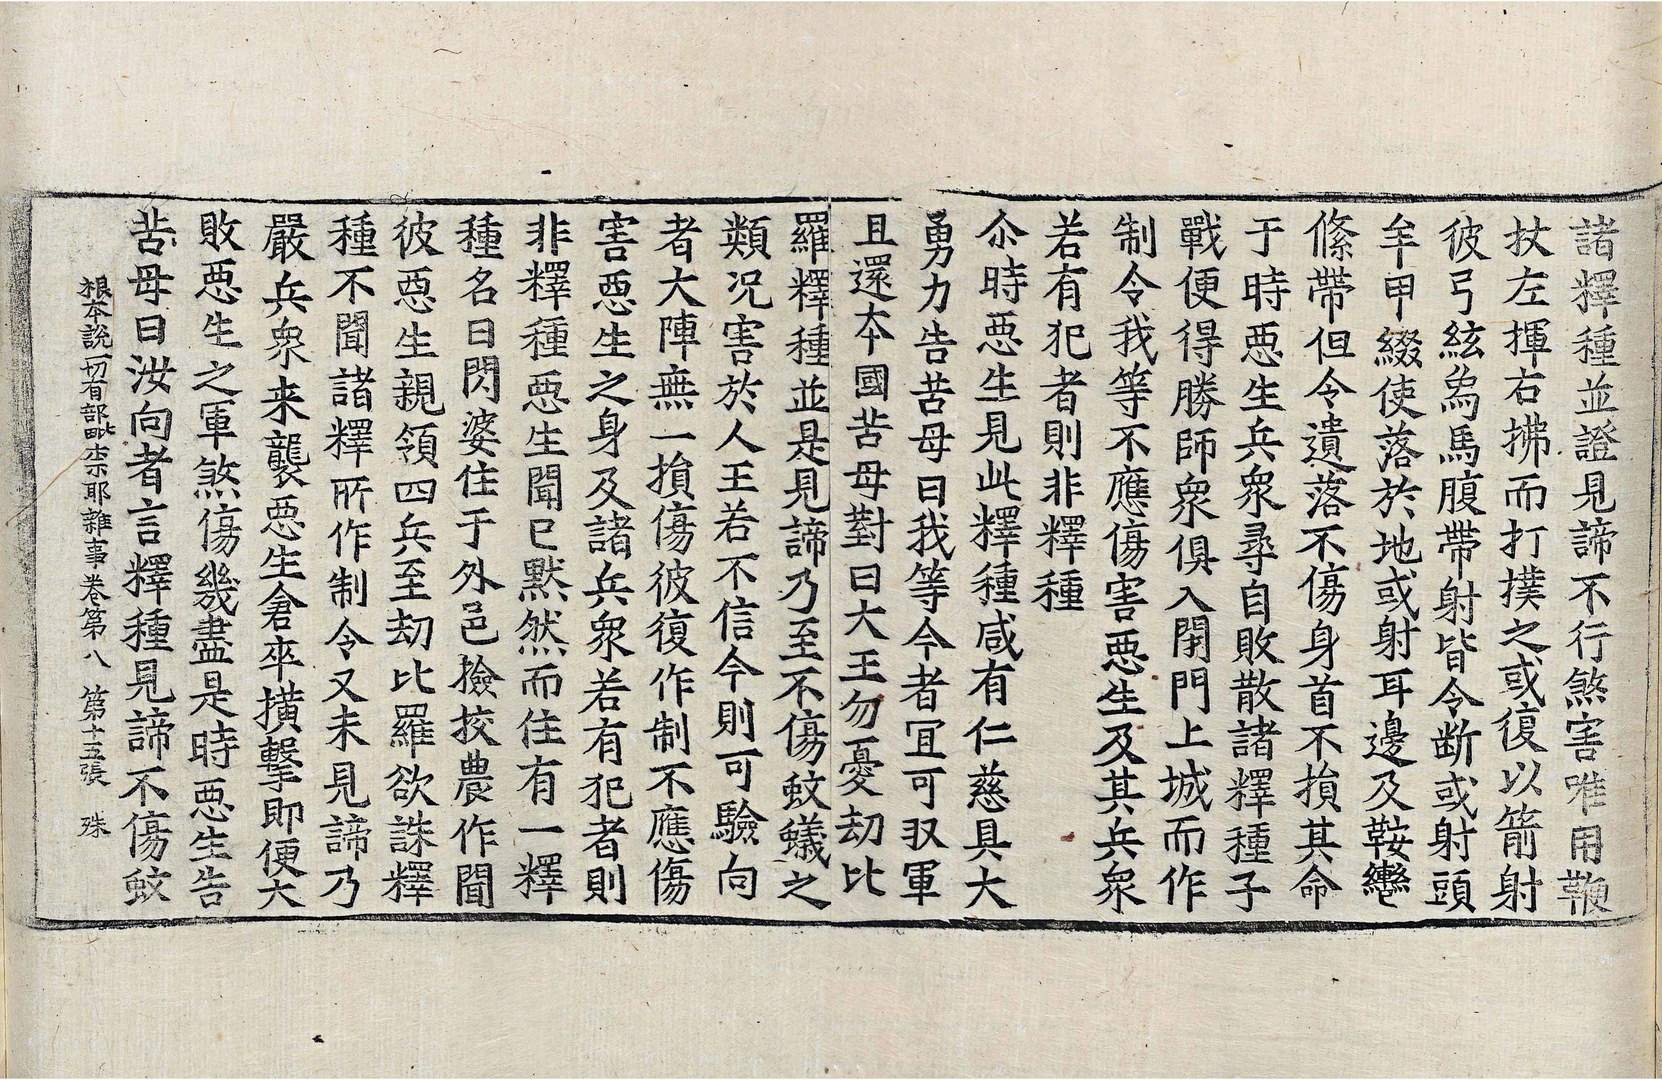 諸釋種並證見諦不行煞害唯用鞭
扙左揮右拂而打撲之或復以箭射
彼弓絃爲馬腹帶射皆令断或射頭
牟甲綴使落於地或射耳邊及鞍轡
絛帶但令遺落不傷身首不損其命
于時惡生兵衆尋自敗散諸釋種子
戰便得勝師衆俱入閇門上城而作
制令我等不應傷害惡生及其兵衆
若有犯者則非釋種
尒時惡生見此釋種咸有仁慈具大
勇力告苦母曰我等今者冝可収軍
且還本國苦母對曰大王勿憂劫比
羅釋種並是見諦乃至不傷蚊蟻之
類況害於人王若不信今則可驗向
者大陣無一損傷彼復作制不應傷
害惡生之身及諸兵衆若有犯者則
非釋種惡生聞已默然而住有一釋
種名曰閃婆住于外邑撿挍農作聞
彼惡生親領四兵至劫比羅欲誅釋
種不聞諸釋所作制令又未見諦乃
嚴兵衆来襲惡生倉卒撗擊即便大
敗惡生之軍煞傷幾盡是時惡生告
苦母曰汝向者言釋種見諦不傷蚊
根本說一切有部毗奈耶雜事卷第八　第十五張　殊